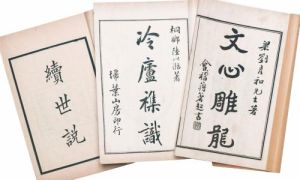 續世説
桐鄉陸以湉著
冷廬雜識
掃葉山房印行
梁劉彥和先生著
文心雕龍